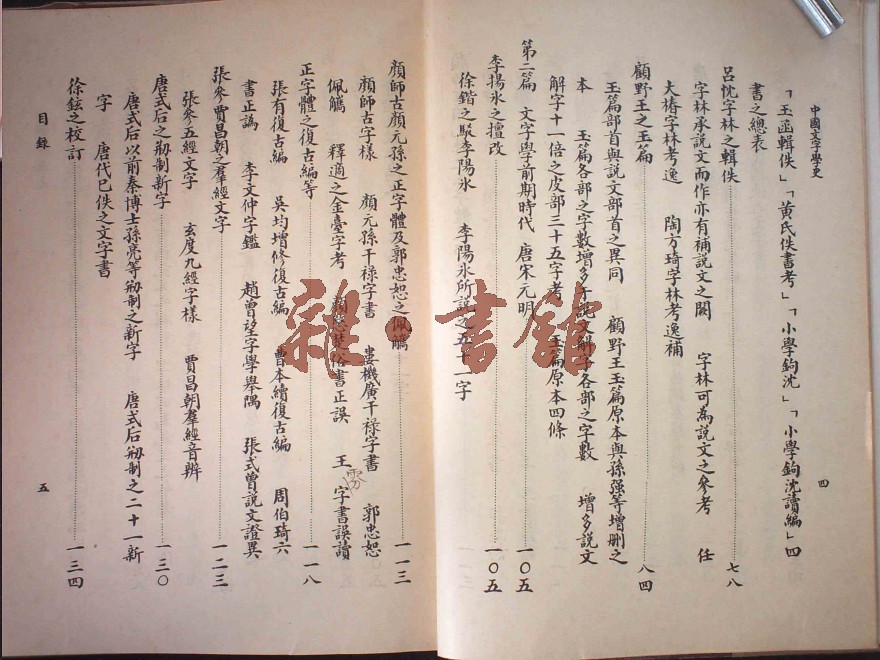 中國文字學史
四
「玉函輯佚」「黄氏佚書考」「小學鉤沈」「小學鉤沈讀編」四
書之總表
呂忱字林之輯佚 七八
字林承説文而作亦有補説文之闕 字林可為説文之參考 任
大椿字林考逸 陶方琦字林考逸補
顧野王之玉篇 八四
玉篇部首與説文部首之異同 顧野王玉篇原本與孫强等增刪之
本 玉篇各部之字數增多于説文解字各部之字數 增多説文
解字十一倍之皮部三十五字考 玉篇原本四條
第二篇 文字學前期時代 唐宋元明 一〇五
李揚冰之擅改 一〇五
徐鍇之駁李陽冰 李陽冰所説之五十一字
顏師古顏元孫之正字體及郭忠恕之佩觿 一一三
顏師古字樣 顏元孫干祿字書 婁機廣干祿字書 郭忠恕
佩觿 釋適之金臺字考 顏愍楚俗書正誤 王雱字書誤讀
正字體之復古編等 一一八
張有復古編 吳均增修復古編 曹本續復古編 周伯琦六
書正譌 李文仲字鑑 趙曾望字學舉隅 張式曾説文證異
張參賈昌朝之羣經文字 一二三
張參五經文字 玄度九經字樣 賈昌朝羣經音辨
唐武后之剏制新字 一三〇
唐武后以前秦博士孫亮等剏制之新字 唐武后剏制之二十一新
字 唐代已佚之文字書
徐鉉之校訂 一三四
目録
五
雜·書館